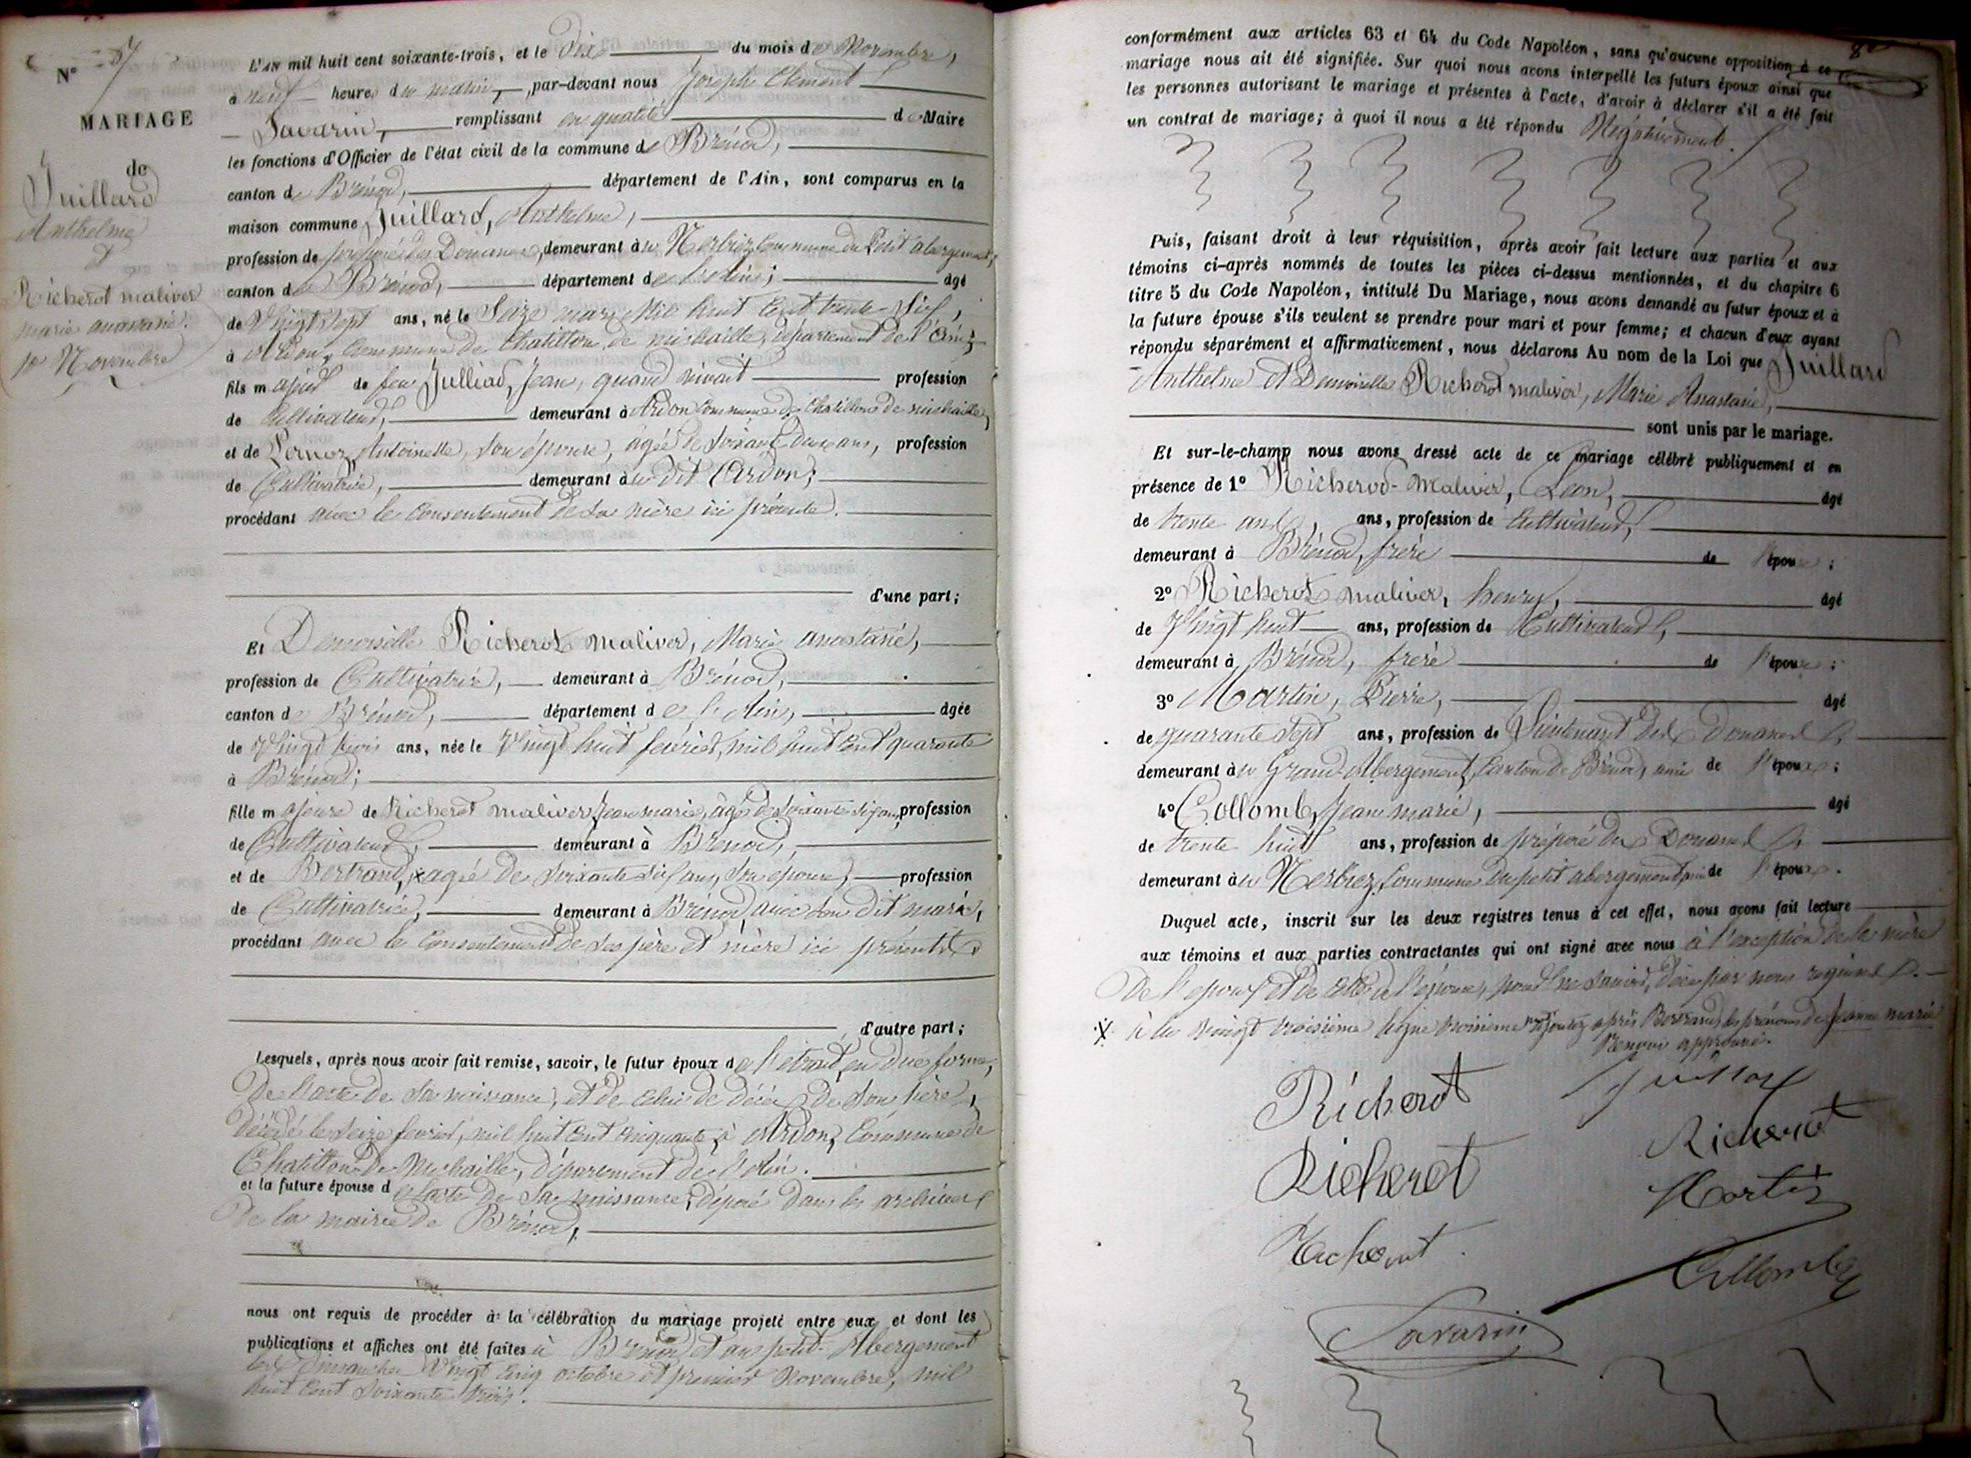 N° 
MARIAGE
de
Juillard
Anthelme
et
Richerot maliver
marie anastasie.
10 Novembre
L'AN mil huit cent soixante-trois, et le dix du mois de Novembre,
à neuf heures du matin, par-devant nous Joseph Clément
Savarin, remplissant en qualité de Maire
les fonctions d'Officier de l'état civil de la commune de Brénod,
canton de Brénod, département de l'Ain, sont comparus en la
maison commune Juillard, Anthelme,
profession de préposé des Douanes, demeurant à Commune du Petit abergement,
canton de Brénod, département de âgé
de Vingt sept ans, né le Seize mars Mil huit Cent trente Six,
à Ardon, Commune de Chatillon de michaille, département de l'Ain;
fils majeur de feu Julliard, Jean, quand vivait profession
de Cultivateur, demeurant à Ardon Commune de Chatillon de michaille,
et de Antoinette, son épouse, agée de soixante ans, profession
de Cultivatrice, demeurant au dit Ardon;
procédant avec le Consentement de sa mère ici présente.
d'une part;
Et Demoiselle Richerot maliver, Marie anastasie,
profession de Cultivatrice, demeurant à Brénod,
canton de Brénod, département de l'Ain, âgée
de Vingt trois ans, née le Vingt huit février, mil huit Cent quarante
à Brénod;
fille majeure de Richerot maliver, Jean marie, âgé de soixante six ans, profession
de Cultivateur, demeurant à Brénod,
et de Bertrand, x agée de soixante six ans, son épouse, profession
de Cultivatrice, demeurant à Brénod, avec son dit mari,
procédant avec le Consentement de ses père et mère ici présents
d'autre part;
Lesquels, après nous avoir fait remise, savoir, le futur époux de l'extrait, en due forme,
De l'acte de Sa naissance, et de celui de décès de Son père,
décédé le Seize février, mil huit Cent Cinquante, à Ardon, Commune de
Chatillon de Michaille, département de l'Ain.
et la future épouse de l'acte de Sa naissance, déposé dans les archives
De la mairie de Brénod,
nous ont requis de procéder à la célébration du mariage projeté entre eux et dont les
publications et affiches ont été faites à Brénod et au petit Abergement
les Dimanches Vingt Cinq octobre et premier Novembre, mil
huit Cent Soixante trois.
conformément aux articles 63 et 64 du Code Napoléon, sans qu'aucune opposition à ce
mariage nous ait été signifiée. Sur quoi nous avons interpellé les futurs époux ainsi que
les personnes autorisant le mariage et présentes à l'acte, d'avoir à déclarer s'il a été fait
un contrat de mariage; à quoi il nous a été répondu Négativement.
Puis, faisant droit à leur réquisition, après avoir fait lecture aux parties et aux
témoins ci-après nommés de toutes les pièces ci-dessus mentionnées, et du chapitre 6
titre 5 du Code Napoléon, intitulé Du Mariage, nous avons demandé au futur époux et à
la future épouse s'ils veulent se prendre pour mari et pour femme; et chacun d'eux ayant
répondu séparément et affirmativement, nous déclarons Au nom de la Loi que Juillard
Anthelme et Demoiselle Richerot maliver, Marie Anastasie,
sont unis par le mariage.
Et sur-le-champ nous avons dressé acte de ce mariage célébré publiquement et en
présence de 1° Richerot-maliver, Léon, âgé
de trente ans, ans, profession de Cultivateur,
demeurant à Brénod, frère de l'épouse;
2° Richerot maliver, henry, âgé
de Vingt huit ans, profession de Cultivateur,
demeurant à Brénod, frère de l'épouse;
3° Martin, Pierre, âgé
de quarante Sept ans, profession de Lieutenant des Douanes,
demeurant au Grand Abergement, Canton de Brénod, ami de l'époux;
4° Collomb, Jean marie, âgé
de trente huit ans, profession de préposé des Douanes,
demeurant à Commune du petit abergement, ami de l'époux.
Duquel acte, inscrit sur les deux registres tenus à cet effet, nous avons fait lecture
aux témoins et aux parties contractantes qui ont signé avec nous à l'exception de la mère
De l'époux et de celle de l'épouse, pour ne savoir, de ce par nous requises.
x à la Vingt troisième ligne ajouté après Bertrand, les prénoms de Jeanne marie
Renvoi approuvé.
Richerot
Juillard
Richerot
Richerot
Martin
Richerot
Collomb
Savarin